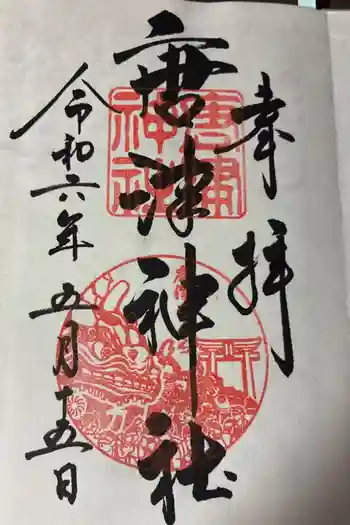 奉拝
唐津神社
令和六年五月十五日
唐津
神社